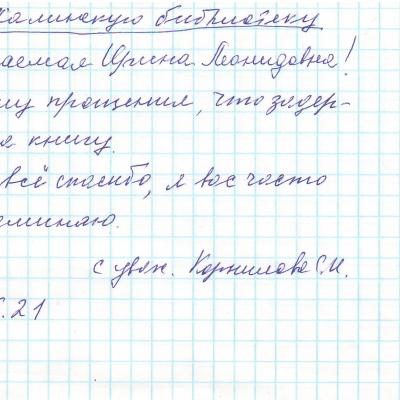 Калинскую библиотеку
аемая Ирина Леонидовна!
шу прощения, что задер-
я книгу.
всё спасибо, я вас часто
оминаю.
с уваж. Корнилова С.И.
.21